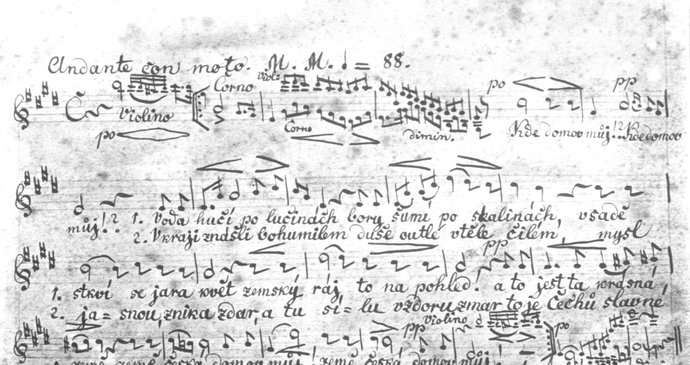 Andante con moto. M. M. ♩ = 88.
Viol: Corno po pp
violino Corno dimin. Kde domov můj!? Kde domov
po
můj!? 1. Voda hučí po lučinách bory šumí po skalinách, vsadě
2. V kraji znášli bohumilem duše outlé vtěle čilém, mysl
pp
1. stkví se jara květ zemský ráj to na pohled. a to jest ta krásná,
2. ja=snou, znika zdar, a tu sí=lu vzdoru zmar to je Čechů slavné
pp violino po
1. země země česká domov můj země česká domov můj